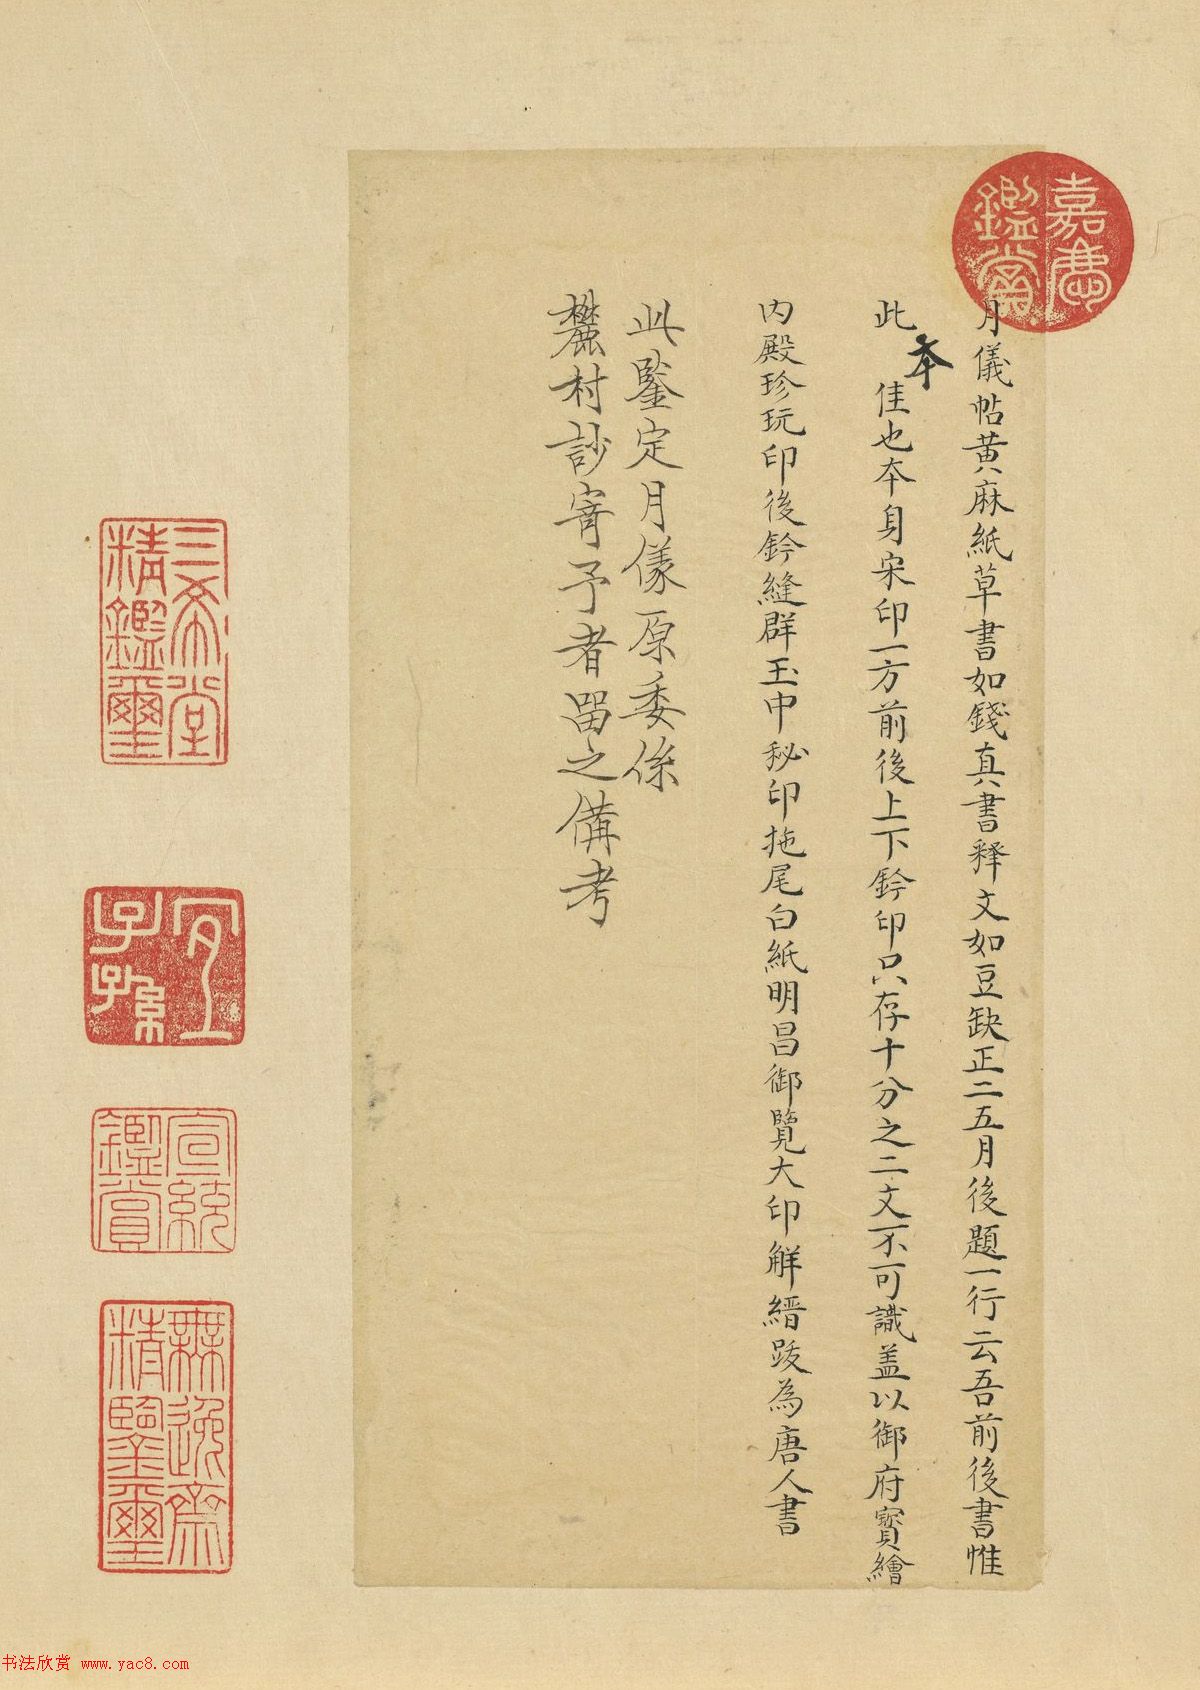 嘉慶鑑賞
月儀帖黄麻紙草書如錢真書釋文如豆缺正二五月後題一行云吾前後書惟
此本佳也本身宋印一方前後上下鈐印只存十分之二文不可識盖以御府寳繪
内殿珍玩印後鈐縫群玉中秘印拖尾白紙明昌御覽大印解縉跋為唐人書
此鑒定月儀原委係
麓村訬寄予者留之備考
三希堂精鑑璽
宜子孫
宣統鑑賞
無逸齋精鑒璽
书法欣赏 www.yac8.com